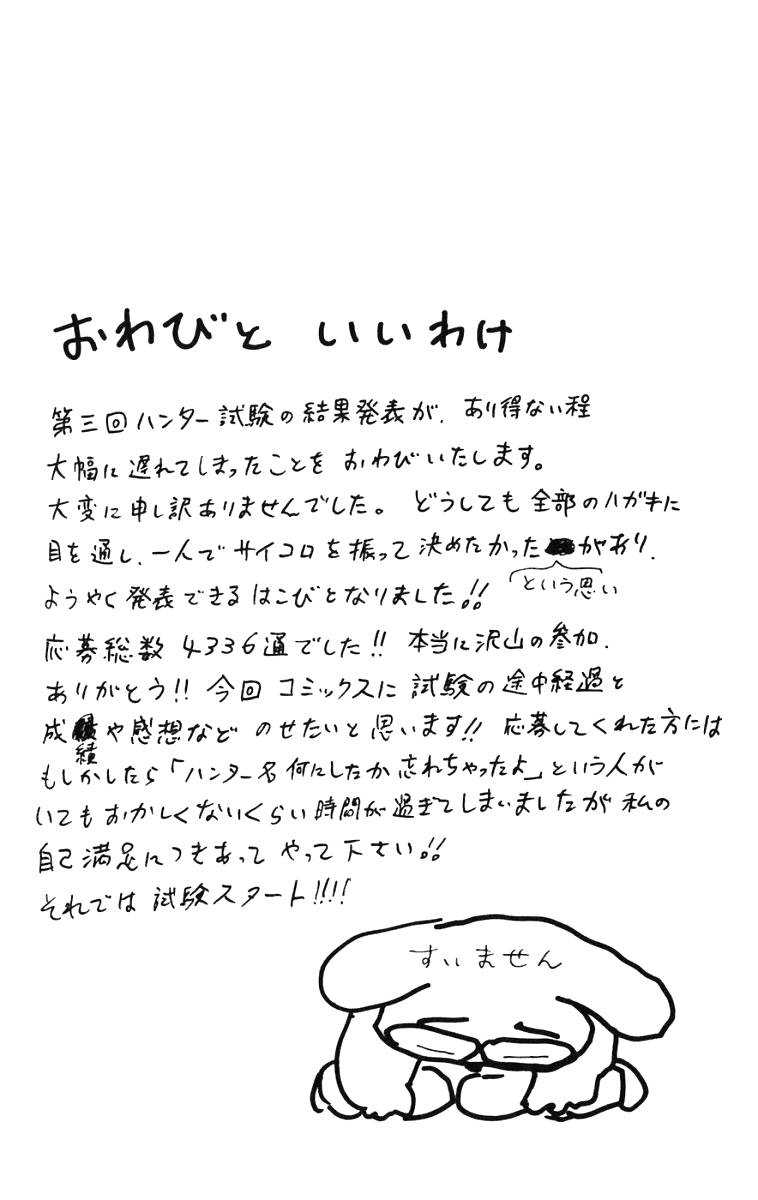 おわびと いいわけ
第三回ハンター試験の結果発表が、あり得ない程
大幅に遅れてしまったことを おわびいたします。
大変に申し訳ありませんでした。 どうしても 全部のハガキに
目を通し、一人でサイコロを振って決めたかったがあり、
という思い
ようやく発表できるはこびとなりました!!
応募総数 4336通でした!! 本当に沢山の参加、
ありがとう!! 今回 コミックスに 試験の途中経過と
成や感想など のせたいと思います!! 応募してくれた方には
績
もしかしたら「ハンター名 何にしたか忘れちゃったよ」という人が
いてもおかしくないくらい時間が過ぎてしまいましたが 私の
自己満足につきあって やって下さい!!
それでは 試験スタート!!!!
すいません